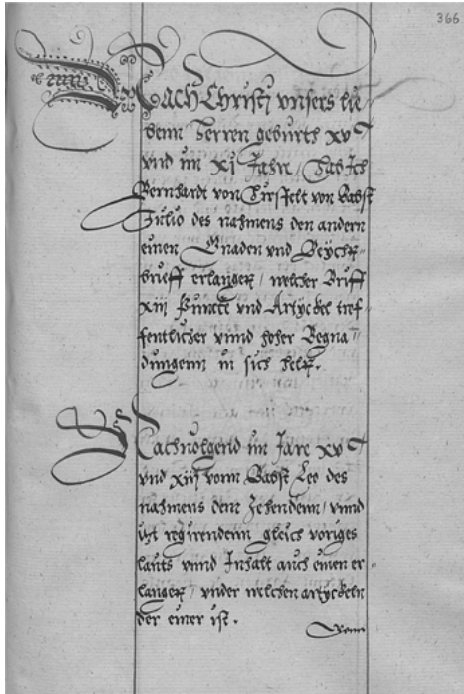 366
Nach Christi vnsers lie-
benn Herren geburth xv C
vnd im xi Jahr, Hab Ich
Bernhardt von Hirsfelt von Babst
Julio des nahmens den andern
einen Gnaden vnd Beycht-
brieff erlanget, welcher Briff
xiij Puncte vnd Artyckel tref-
fentlicher vnnd hoher Begna-
dungenn in sich helt.
Nachuolgend im Jare xv C
vnd xiij vonn Babst Leo des
nahmens denn Zehendenn, vnnd
itzt regirendenn gleich voriges
lauts vnnd Inhalt auch einen er-
langet, vnder welchen artyckeln
der einer ist.
Wenn